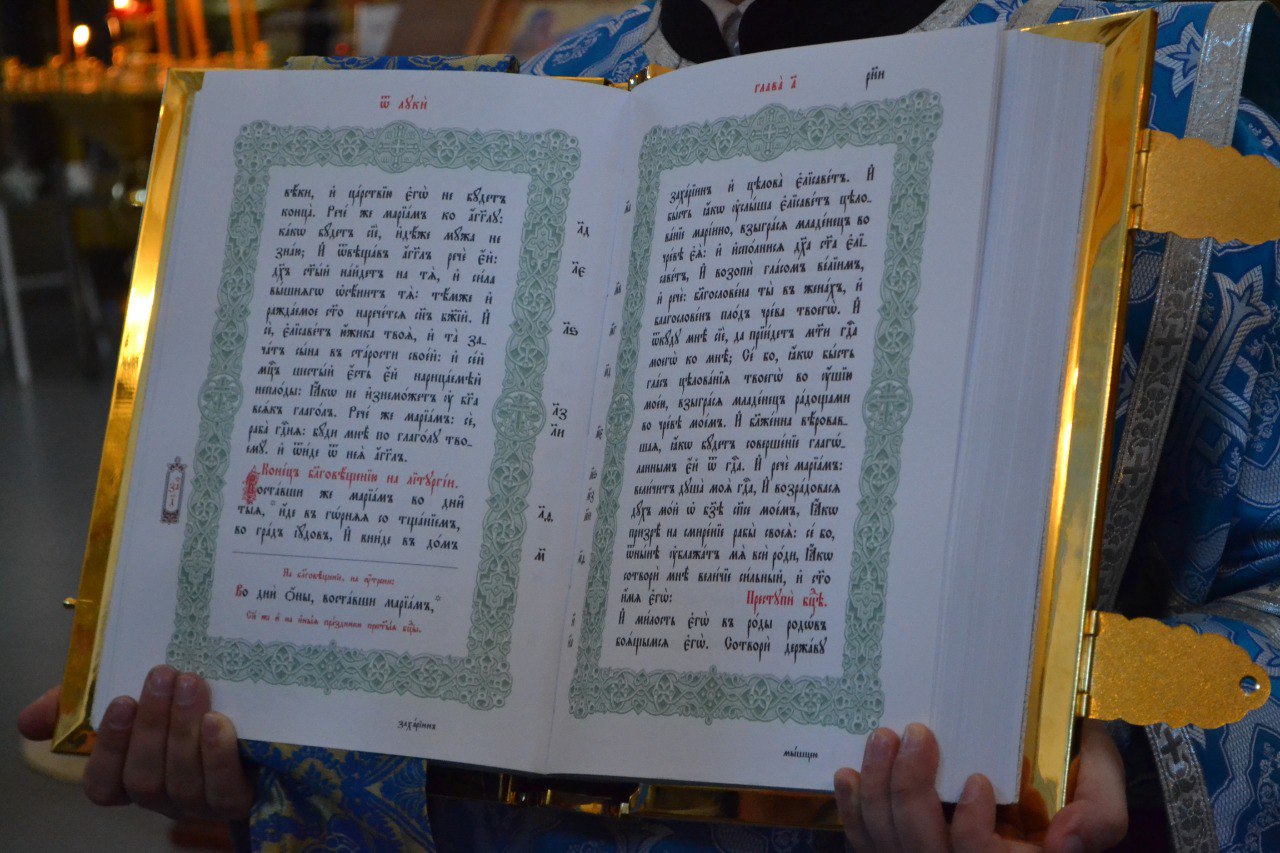 Ѿ лꙋки̑
вѣ́ки, и҆ ца́рствїю є҆гѡ̀ не бꙋ́детъ
конца̀. Рече́ же марїа́мъ ко а҆́гг҃лꙋ:
ка́кѡ бꙋ́детъ сїѐ, и҆дѣ́же мꙋ́жа не
зна́ю; И҆ ѿвѣща́въ а҆́гг҃лъ речѐ є҆́й:
дх҃ъ ст҃ы́й на́йдетъ на тѧ̀, и҆ си́ла
вы́шнѧгѡ ѡ҆сѣни́тъ тѧ̀: тѣ́мже и҆
ражда́емое ст҃о нарече́тсѧ сн҃ъ бж҃їй. И҆
сѐ, є҆лїсаве́тъ ю҆́жика твоѧ̀, и҆ та̀ за-
ча́тъ сы́на въ ста́рости свое́й: и҆ се́й
мц҃ъ шесты́й є҆́сть є҆́й нарица́емѣй
непло́ды: Ꙗ҆́кѡ не и҆знемо́жетъ ᲂу҆ бг҃а
всѧ́къ глаго́лъ. Рече́ же марїа́мъ: сѐ,
раба̀ гд҇нѧ: бꙋ́ди мнѣ̀ по глаго́лꙋ тво-
емꙋ̀. и҆ ѿи́де ѿ неѧ̀ а҆́гг҃лъ.
Коне́цъ бл҃говѣ́щенїю на лїтꙋргі́и.
Воста́вши же марїа́мъ во дни̑
ты̑ѧ,* и҆́де въ гѡ́рнѧѧ со тща́нїемъ,
во гра́дъ і҆ꙋ́довъ, И҆ вни́де въ до́мъ
На бл҃говѣ́щенїе, на ᲂу҆́трени:
Во дни̑ ѻ҆́ны, воста́вши марїа́мъ,*
Сїѐ же и҆ на и҆ны̑ѧ пра́здники прест҃ы́ѧ бц҃ы.
захарі́инъ
з҃а
л҃д
л҃є
л҃ѕ
л҃з
л҃и
л҃ѳ
м҃
глава̀ а҃
рн҃и
захарі́инъ и҆ цѣлова̀ є҆лїсаве́тъ. И҆
бы́сть ꙗ҆́кѡ ᲂу҆слы́ша є҆лїсаве́тъ цѣло-
ва́нїе марі́ино, взыгра́сѧ младе́нецъ во
чре́вѣ є҆ѧ̀: и҆ и҆спо́лнисѧ дх҃а ст҃а є҆лї-
саве́тъ, И҆ возопѝ гла́сомъ ве́лїимъ,
и҆ речѐ: бл҃гослове́на ты̀ въ жена́хъ, и҆
благослове́нъ пло́дъ чре́ва твоегѡ̀. И҆
ѿкꙋ́дꙋ мнѣ̀ сїѐ, да прїи́детъ мт҃и гд҇а
моегѡ̀ ко мнѣ̀; Се́ бо, ꙗ҆́кѡ бы́сть
гла́съ цѣлова́нїѧ твоегѡ̀ во ᲂу҆́шїю
мое́ю, взыгра́сѧ младе́нецъ ра́дощами
во чре́вѣ мое́мъ. И҆ бл҃же́нна вѣ́ровав-
шаѧ, ꙗ҆́кѡ бꙋ́детъ соверше́нїе глаго́-
ланнымъ є҆́й ѿ гд҇а. И҆ речѐ марїа́мъ:
вели́читъ дꙋша̀ моѧ̀ гд҇а, И҆ возра́довасѧ
дꙋ́хъ мо́й ѡ҆ бз҃ѣ сп҃сѣ мое́мъ, Ꙗ҆́кѡ
призрѣ̀ на смире́нїе рабы̀ своеѧ̀: се́ бо,
ѿны́нѣ ᲂу҆блажа́тъ мѧ̀ всѝ ро́ди, Ꙗ҆́кѡ
сотворѝ мнѣ̀ вели́чїе си́льный, и҆ ст҃о
и҆́мѧ є҆гѡ̀: Престꙋпѝ бц҃ѣ.
И҆ ми́лость є҆гѡ̀ въ ро́ды родѡ́въ
боѧ́щымсѧ є҆гѡ̀. Сотворѝ держа́вꙋ
мы́шцею